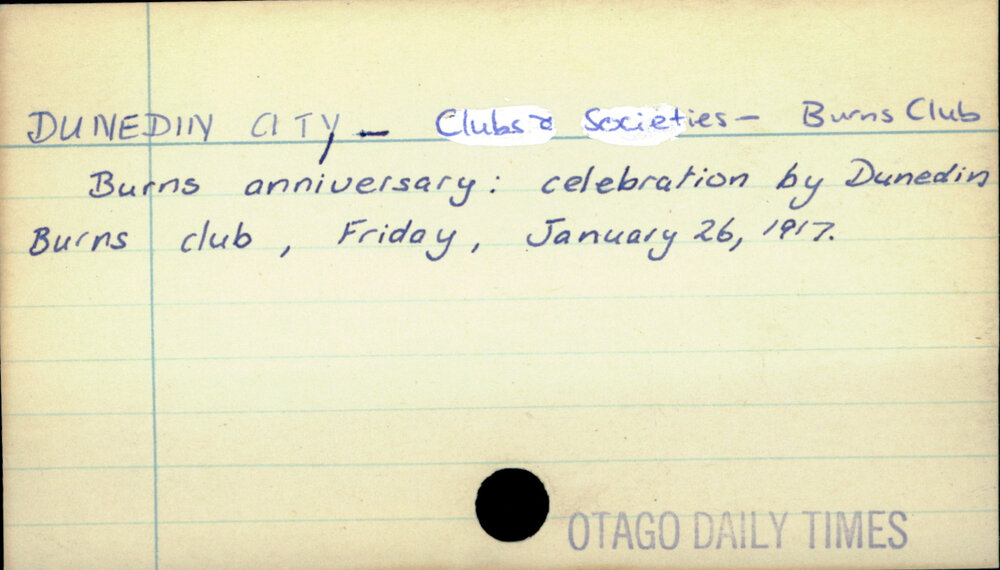 DUNEDIN CITY - Clubs & Societies - Burns Club
Burns anniversary: celebration by Dunedin
Burns club, Friday, January 26, 1917.
OTAGO DAILY TIMES